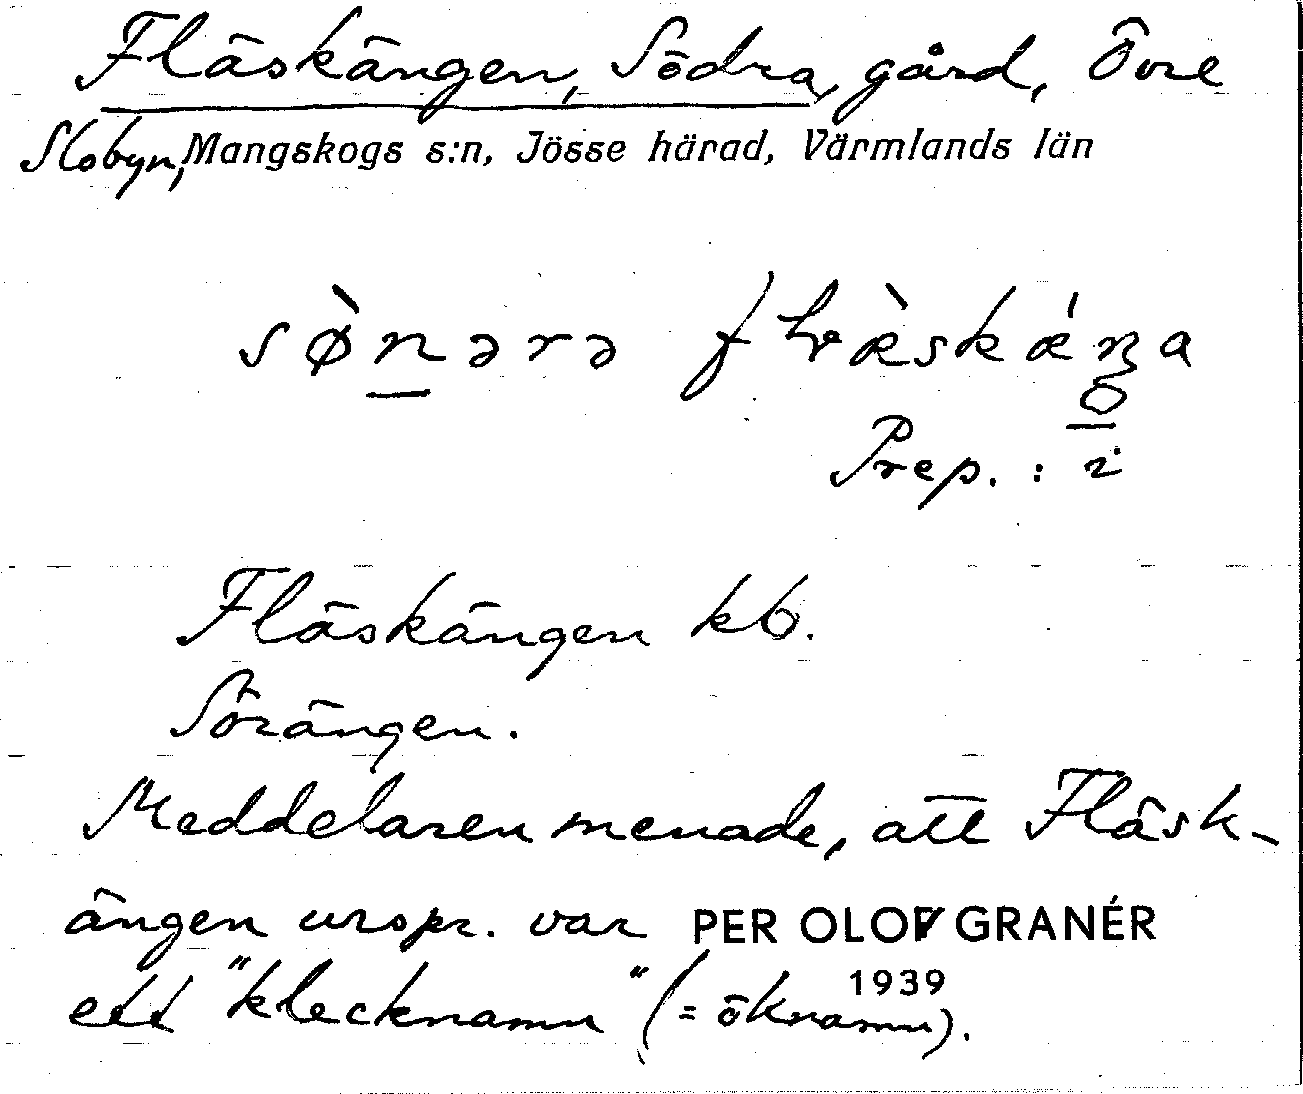 Fläskängen, Södra, gård, Övre
Slobyn, Mangskogs s:n, Jösse härad, Värmlands län
sø̀nərə
Prep. : i
Fläskängen kb.
Sörängen.
Meddelaren menade, att Fläsk-
ängen urspr. var PER OLOF GRANÉR
ett "klecknamn" (= öknamn). 1939